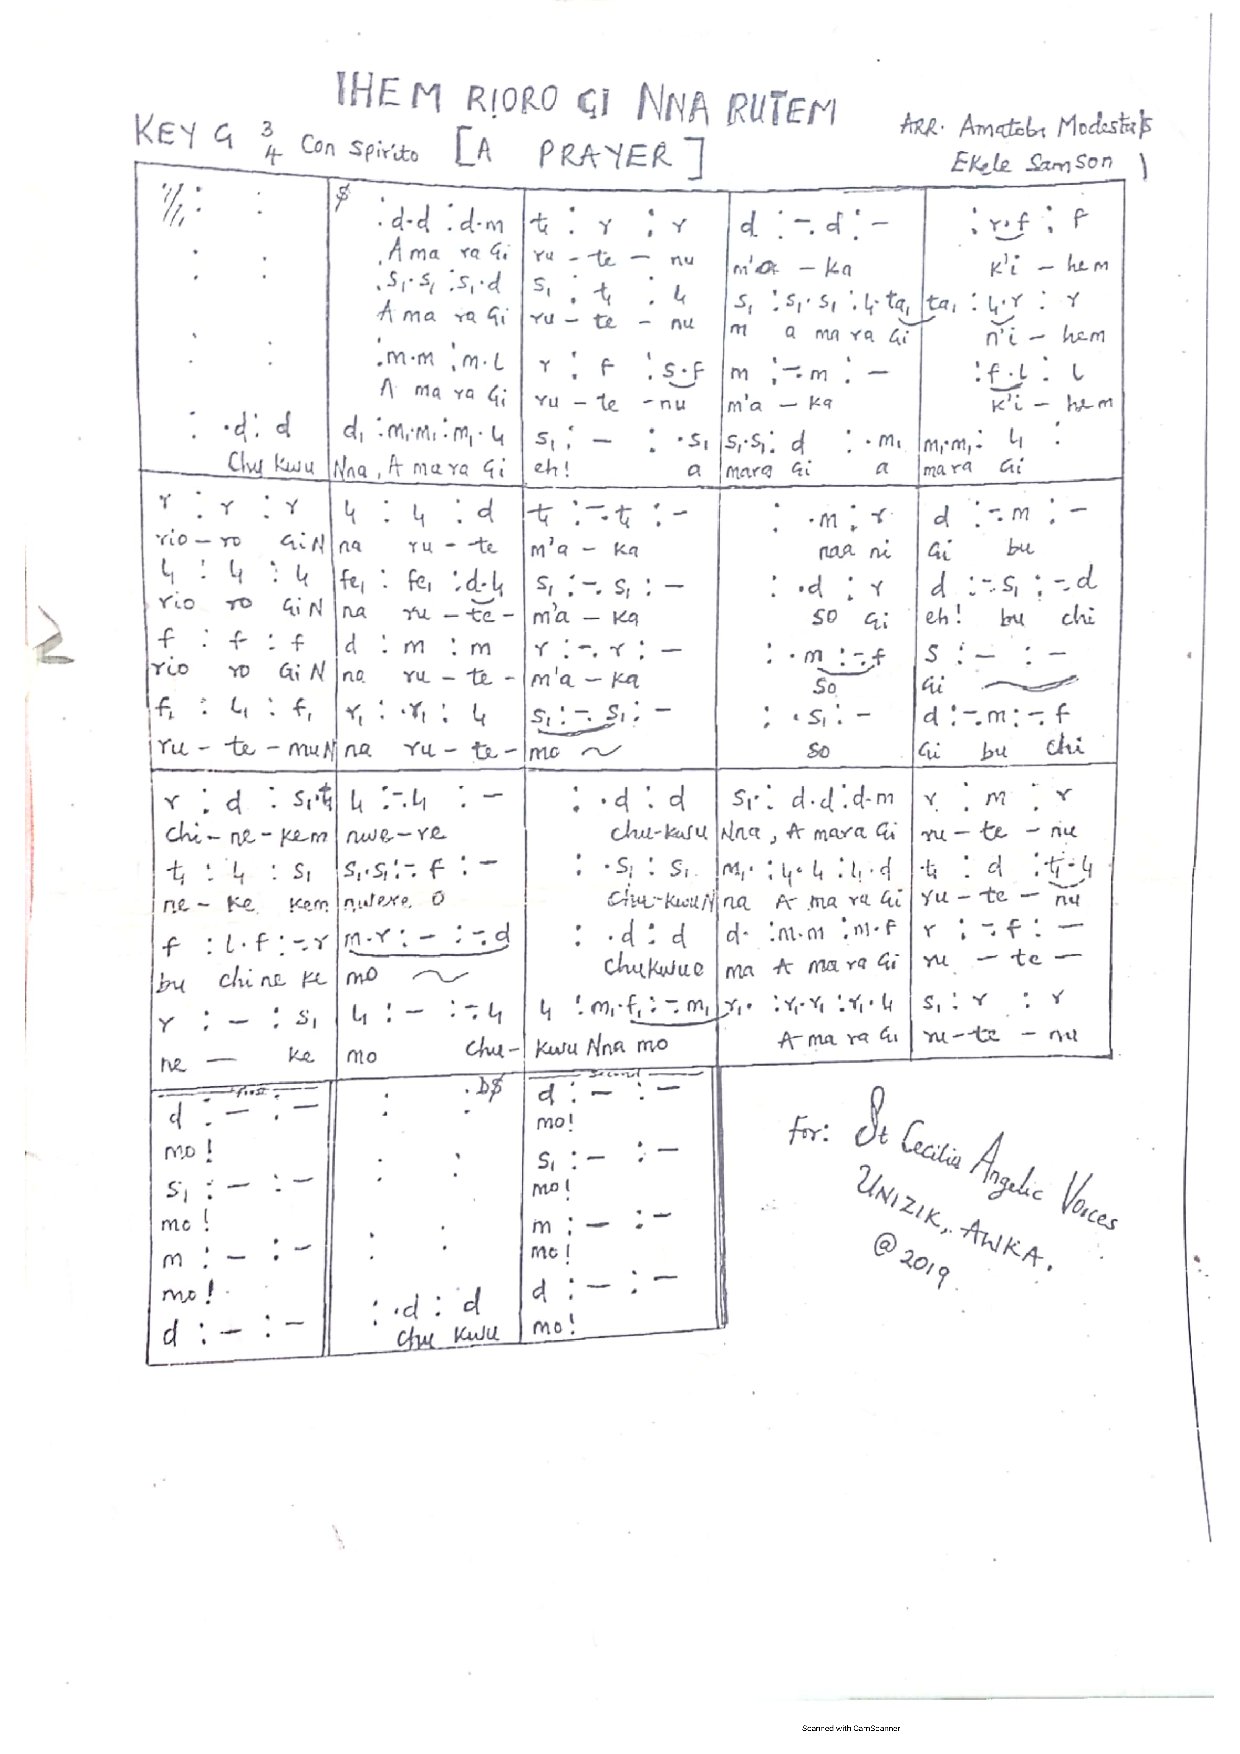 IHEM RIORO GI NNA RUTEM
KEY G 3/4 Con spirito [A PRAYER]
ARR. Amatobi Modestus
Ekele Samson
$ :d.d :d.m | t₁ : r : r | d :-. d :- | : r.f : f
A ma ra Gi ru - te - nu m'a - ka k'i - hem
.s₁.s₁ :s₁.d | s₁ : t₁ : l₁ | s₁ :s₁.s₁ :l₁.ta₁ | ta₁ : l₁.r : r
A ma ra Gi ru - te - nu m a ma ra Gi n'i - hem
:m.m :m.l | r : f :s.f | m :-. m : - | :f.l : l
A ma ra Gi ru - te - nu m'a - ka k'i - hem
: .d: d | d₁ :m₁.m₁:m₁.l₁ | s₁: - : .s₁ | s₁.s₁: d : .m₁ | m₁.m₁: l₁ :
Chu kwu Nna, A ma ra Gi eh! a mara Gi a mara Gi
r : r : r | l₁ : l₁ : d | t₁ :-. t₁ : - | : .m : r | d :-. m : -
rio - ro GiN na ru - te m'a - ka naa ni Gi bu
l₁ : l₁ : l₁ | fe₁ : fe₁ :d.l₁ | s₁ :-. s₁ : - | : .d : r | d :-. s₁ :-. d
rio ro GiN na ru - te - m'a - ka so Gi eh! bu chi
f : f : f | d : m : m | r :-. r : - | : .m :-. f | s : - : -
rio ro GiN na ru - te - m'a - ka so Gi
f₁ : l₁ : f₁ | r₁ : .r₁ : l₁ | s₁ :-. s₁: - | : .s₁ : - | d :-. m :-. f
ru - te - muN na ru - te - mo so Gi bu chi
r : d : s₁.t₁ | l₁ :-. l₁ : - | : .d : d | s₁.: d.d :d.m | r : m : r
chi - ne - kem nwe - re chu-kwu Nna, A mara Gi ru - te - nu
t₁ : l₁ : s₁ | s₁.s₁:-. f : - | : .s₁ : s₁ | m₁. :l₁.l₁ :l₁.d | t₁ : d :t₁.l₁
ne - ke kem nwere O Chu-kwuN na A ma ra Gi ru - te - nu
f : l.f :-. r | m.r : - :-. d | : .d : d | d. :m.m :m.f | r :-. f : -
bu chi ne ke mo chukwuo ma A ma ra Gi ru - te -
r : - : s₁ | l₁ : - :-. l₁ | l₁ : m₁.f₁ :-. m₁ | r₁. :r₁.r₁ :r₁.l₁ | s₁ : r : r
ne - ke mo chu- kwu Nna mo A ma ra Gi ru - te - nu
First D$ Second
d : - : - | : : | d : - : -
mo! mo!
s₁ : - : - | : : | s₁ : - : -
mo! mo!
m : - : - | : : | m : - : -
mo! mo!
d : - : - | : .d : d | d : - : -
chu kwu mo!
For: St Cecilia Angelic Voices
UNIZIK, AWKA.
@ 2019
Scanned with CamScanner